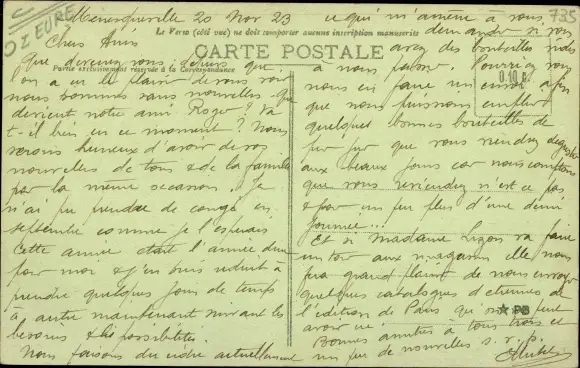 Ménesqueville 20 Nov 23
Chers Amis
Que devenez vous depuis que
l'on a eu le plaisir de vous voir
nous sommes sans nouvelles. que
devient notre ami Roger? Va
t-il bien en ce moment? Nous
serons heureux d'avoir de vos
nouvelles de tous & de la famille
par la même occasion. Je
n'ai pu prendre de congé en
septembre comme je l'espérais
Cette année était l'année dure
pour moi & j'en suis réduit à
prendre quelques jours de temps
à autre maintenant suivant les
besoins & les possibilités.
Nous faisons du cidre actuellement
ce qui m'amène à vous
demander si vous
avez des bouteilles vides
à nous passer. Pourriez vous
nous en faire un envoi afin
que nous puissions emplir
quelques bonnes bouteilles de
que vous viendrez déguster
aux beaux jours car nous comptons
que vous reviendrez n'est ce pas
& pour un peu plus d'une demi
journée...
Et si Madame va faire
un tour aux magasins elle nous
fera grand plaisir de nous envoyer
quelques catalogues d'étrennes de
l'édition de Paris qu
avoir ici
Bonnes amitiés à tous trois et
un peu de nouvelles s.v.p.
Le Verso (côté vue) ne doit comporter aucune inscription manuscrite
CARTE POSTALE
Partie exclusivement réservée à la Correspondance
OZ EURE
735
0.10
PB